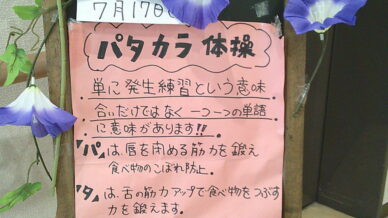 7月17日
パタカラ 体操
単に発生練習という意味
合いだけではなく 一つ一つの単語
に意味があります!!
「パ」は、唇を閉める筋力を鍛え
食べ物のこぼれ防止。
「タ」は、舌の筋力アップで食べ物をつぶす
力を鍛えます。